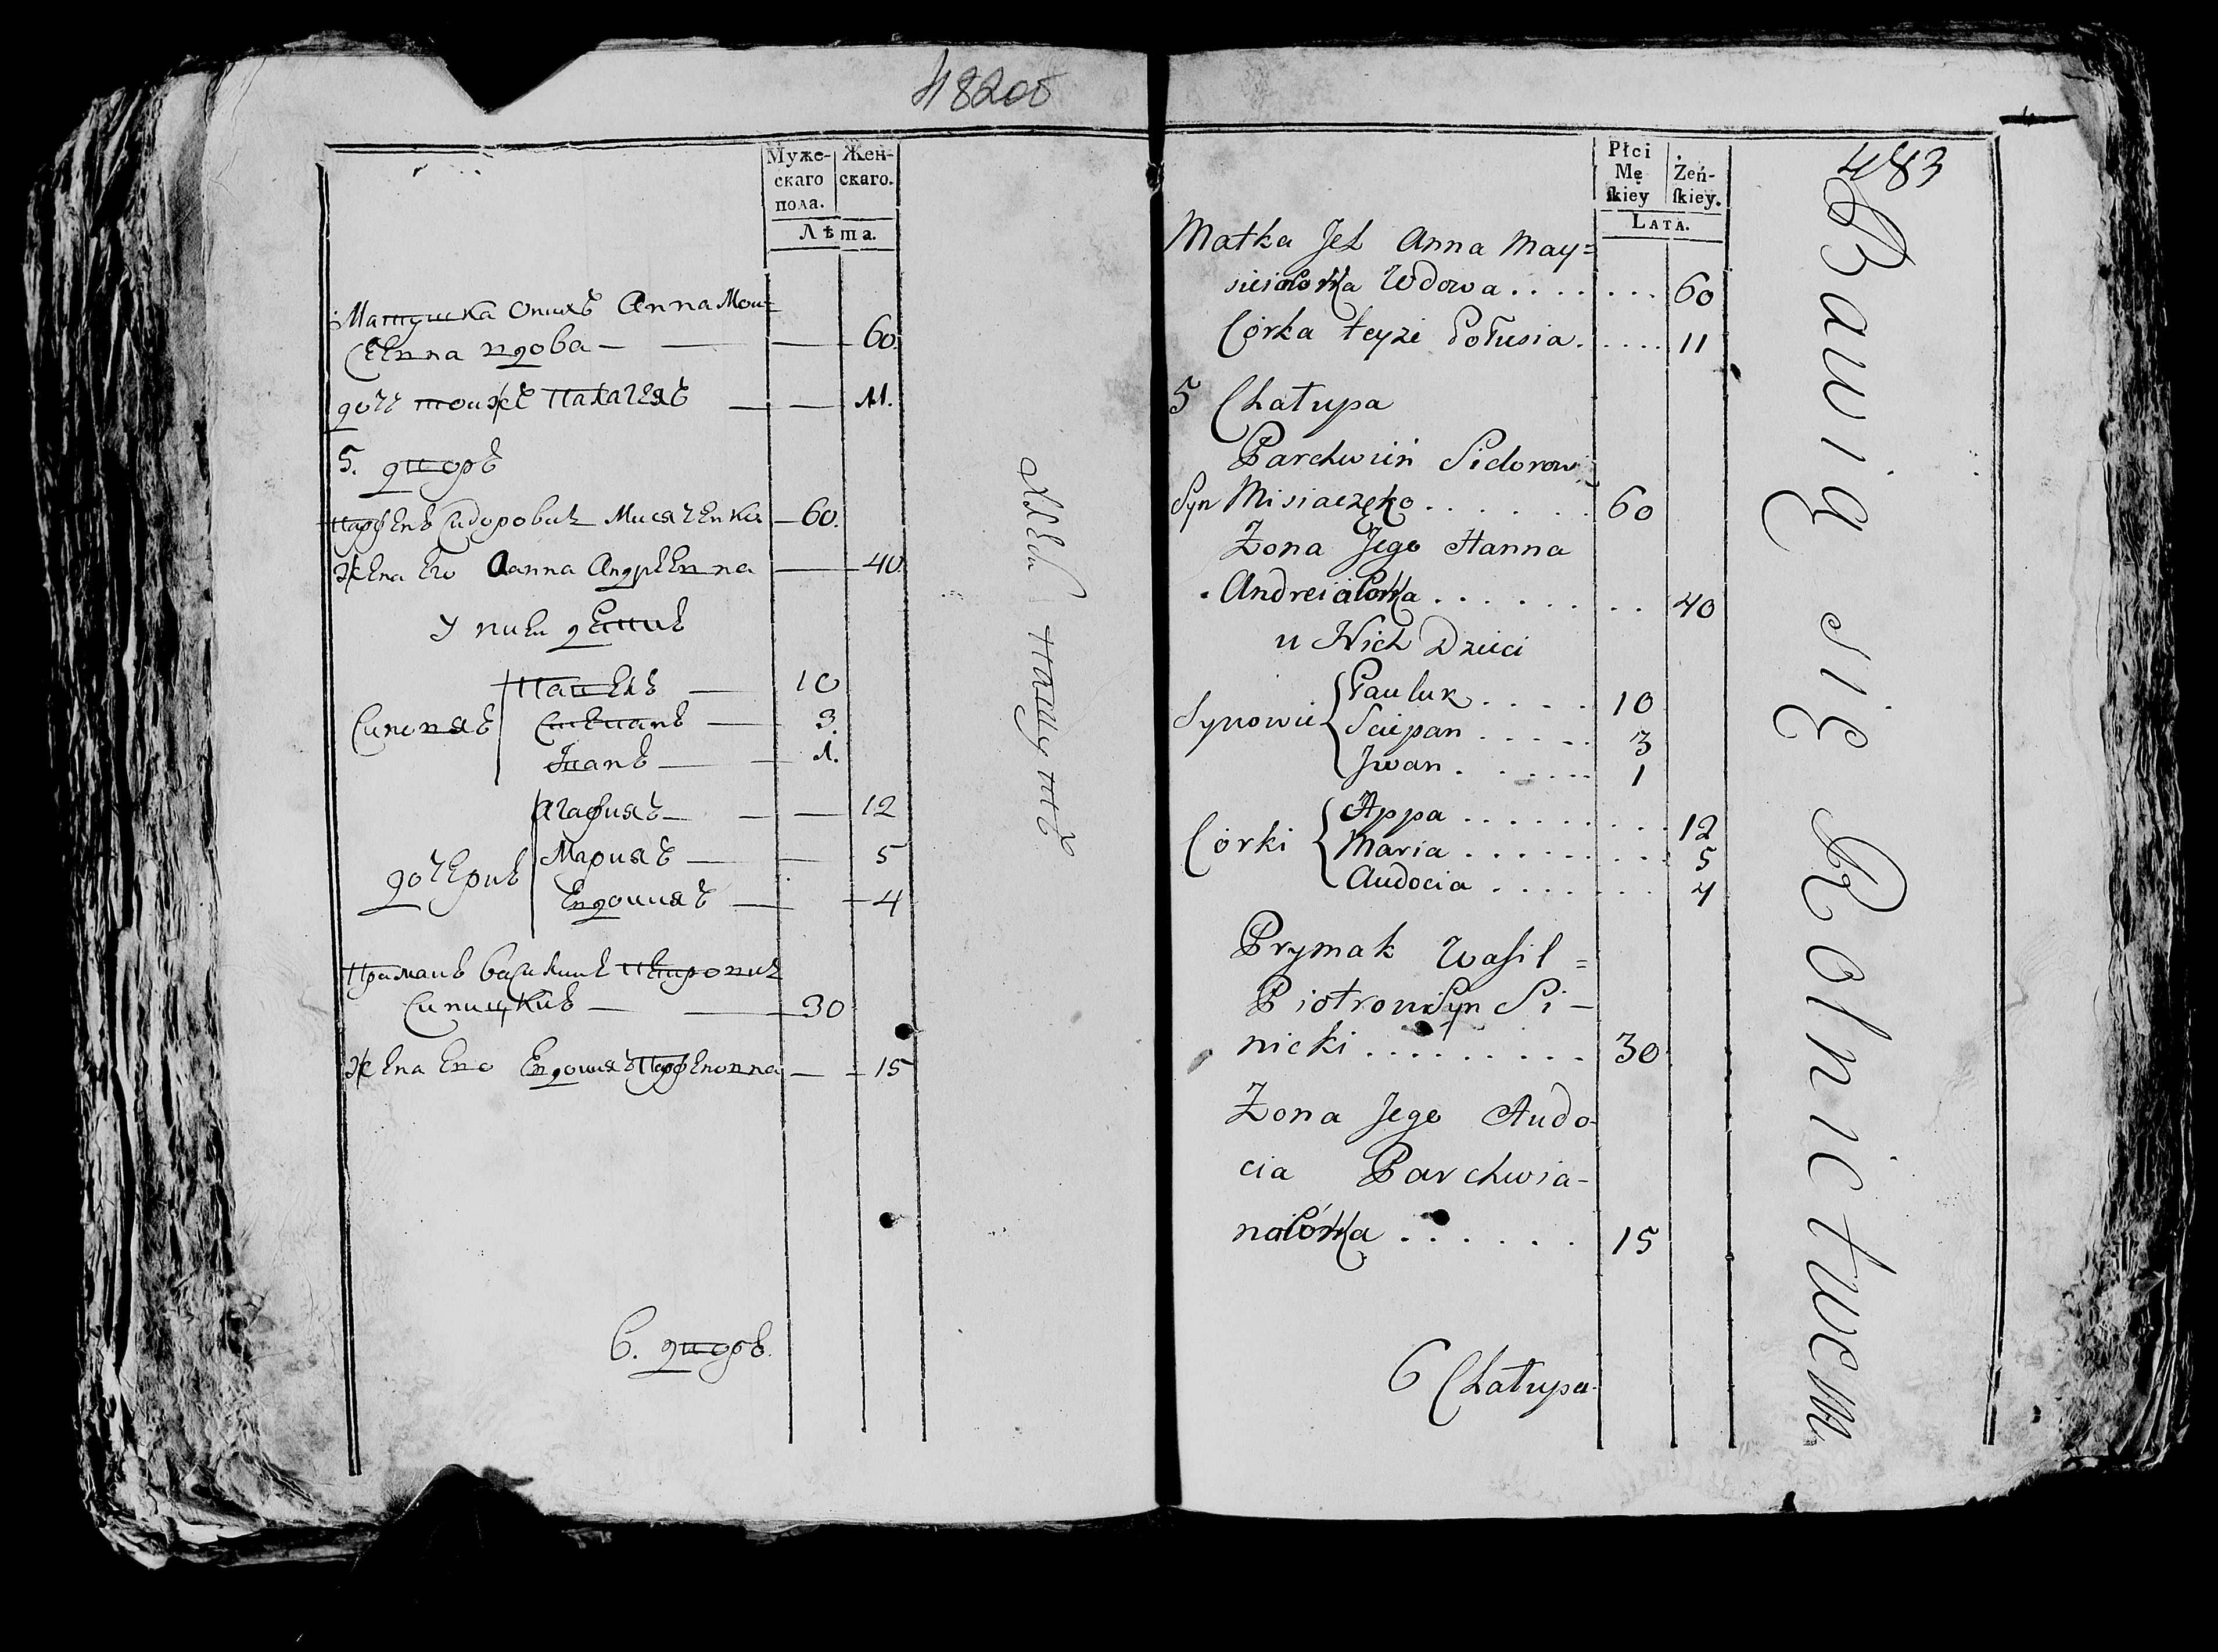 482об
Муже-
скаго
пола.
Жен-
скаго.
Лѣта.
Матушка Опихъ Анна Мои=
сеевна вдова — 60.
дочь тоижъ Палагеяъ — 11.
5. дворъ
Парфенъ Сидоровичъ Мисяченка — 60.
Жена Его Ганна Андреевна — 40
У нихъ детивъ
Павелъ — 10
Сиповяъ Степанъ — 3.
Іванъ — 1.
Агафияъ — 12
дочеривъ Марияъ — 5
Евдошияъ — 4
Примакъ Василий Петровичъ
Синицкий — 30
Жена Ево Евдошия Парфеновна — 15
6. дворъ.
483
Płci
Mę
skiey
Żeń-
skiey.
LATA.
Matka Jch Anna May=
sieiowka Wdowa . . . . . . . 60
Córka teyże Połusia . . . . . 11
5 Chałupa
Parchwin Sidorow
Syn Misiaczęko . . . . . . 60
Żona Jego Hanna
Andreiówka . . . . . . . . 40
u Nich Dzieci
Pauluk . . . . 10
Synowie Sciepan . . . . . 3
Jwan . . . . . . 1
Appa . . . . . . . . . 12
Córki Maria . . . . . . . . . 5
Audocia . . . . . . . 4
Prymak Wasil =
Piotrow Syn Si-
nicki . . . . . . . . . . 30
Żona Jego Audo-
cia Parchwia-
nówka . . . . . . 15
6 Chałupa
Bawią się Rolnictwem